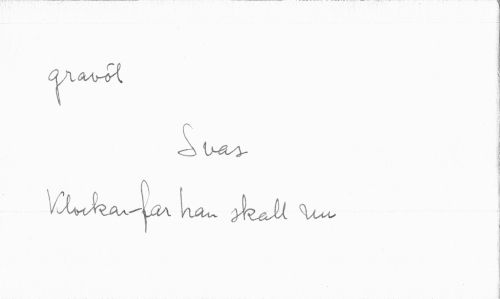 gravöl
Svas
Klockar-far han skall